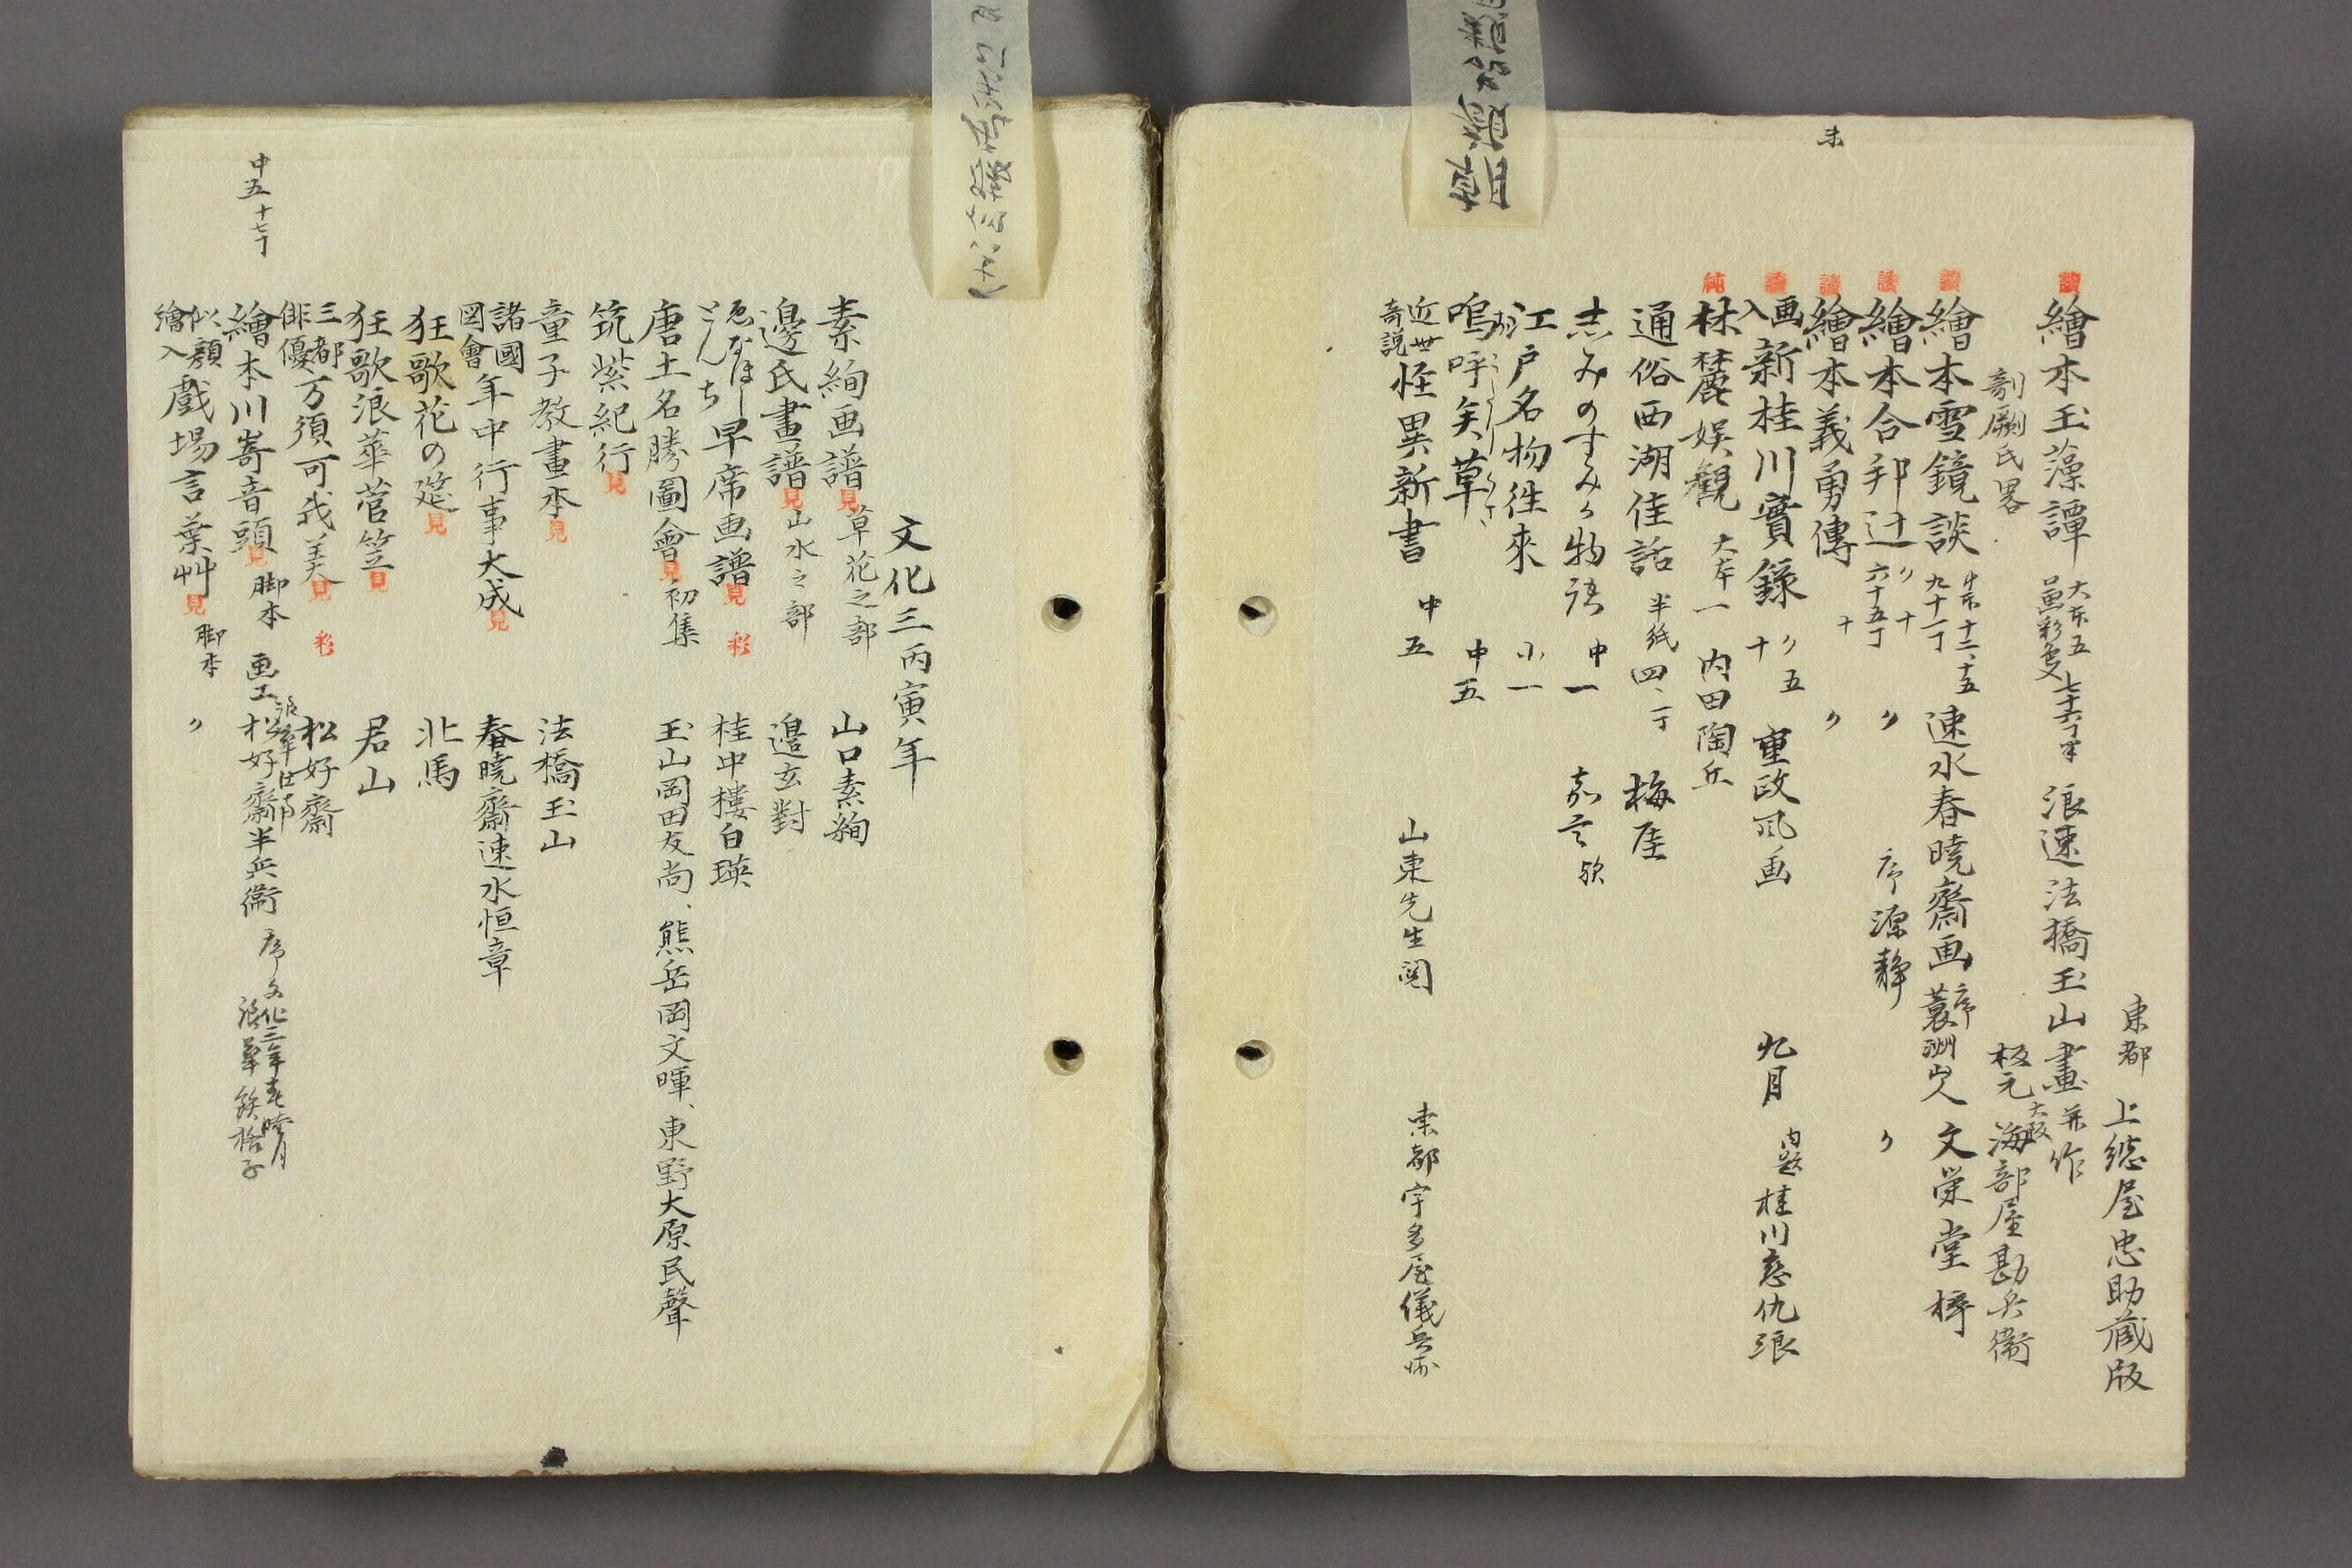 未
東都 上総屋忠助蔵版
讀 繪本玉藻譚 大本五 浪速法橋玉山畫并作
剞劂氏畧 板元 大阪 海部屋勘兵衛
讀 繪本雪鏡談 半本十二、十五 九十一丁 速水春暁齋画 序 蓑洲山人 文栄堂梓
讀 繪本合邦辻 〃十 六十五丁 〃 序 源静 〃
讀 繪本義勇傳 十 〃
讀 画入 新桂川實録 〃五 十 重政風画 九月 内題 桂川恋仇浪
純 林麓娯観 大本一 内田陶丘
通俗西湖佳話 半紙四、一丁 梅屋
志みのすみか物語 中一
江戸名物往來 小一
嗚呼矣草 中五
近世奇説 怪異新書 中五 山東先生閲 東都宇多屋儀兵衛
文化三丙寅年
素絢画譜 見 草花之部 山口素絢
邊氏畫譜 見 山水之部 邉玄對
早席画譜 見 彩 桂中樓白瑛
唐土名勝圖會 見 初集 玉山岡田友尚、熊岳岡文暉、東野大原民聲
筑紫紀行 見
童子教畫本 見 法橋玉山
諸國圖會 年中行事大成 見 春暁齋速水恒章
狂歌花の筵 見 北馬
狂歌浪華菅笠 見 君山
三都俳優 万須可我美 見 彩 松好齋
中五 十七丁 繪本川嵜音頭 見 脚本 画工 松好齋半兵衞 序文化三年春睦月
似顔繪入 戯場言葉艸 見 脚本 〃